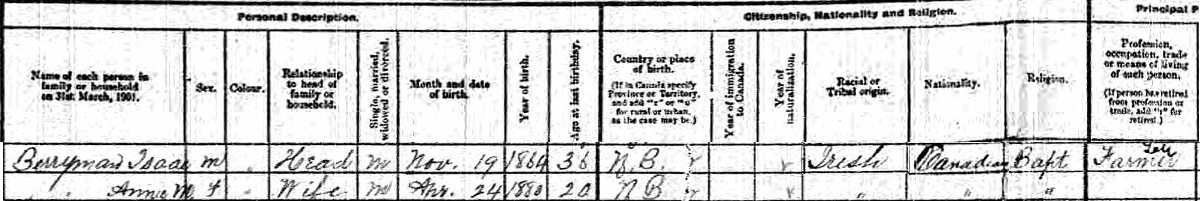 Personal Description. Citizenship, Nationality and Religion. Principal P
Name of each person in family or household on 31st March, 1901.
Sex.
Colour.
Relationship to head of family or household.
Single, married, widowed or divorced.
Month and date of birth.
Year of birth.
Age at last birthday.
Country or place of birth.
(If in Canada specify Province or Territory, and add "r" or "u" for rural or urban, as the case may be.)
Year of immigration to Canada.
Year of naturalization.
Racial or Tribal origin.
Nationality.
Religion.
Profession, occupation, trade or means of living of each person.
(If person has retired from profession or trade, add "r" for retired.)
Berryman Isaac m " Head m Nov. 19 1864 36 N.B. r Irish Canadian Bapt Farmer
" Annie M f " Wife m Apr. 24 1880 20 N.B. r " " "